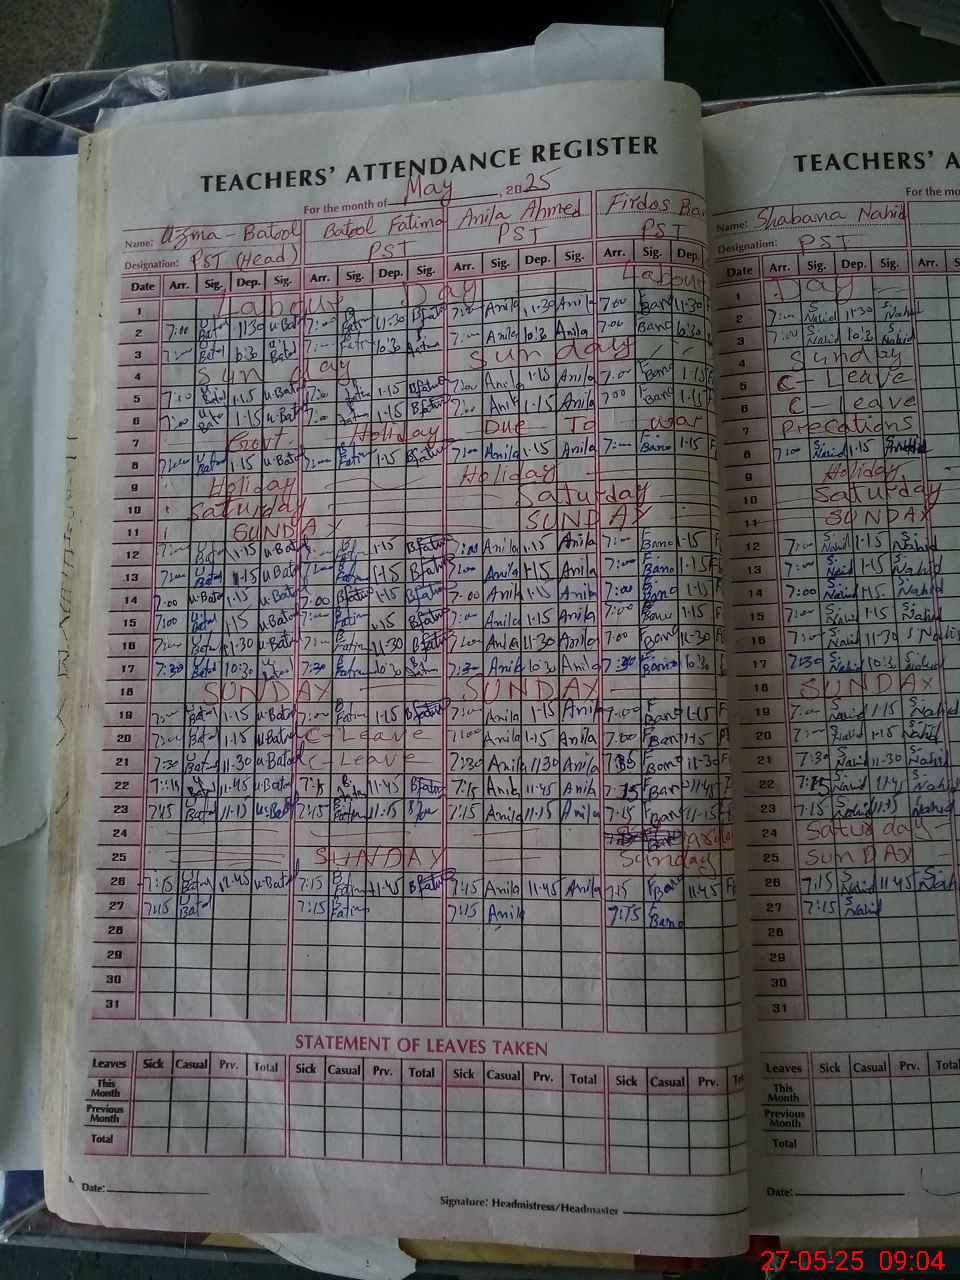 TEACHERS' ATTENDANCE REGISTER
For the month of May, 2025
Name: Uzma - Batool Batool Fatima Anila Ahmed Firdos
Designation: PST (Head) PST PST PST
Date Arr. Sig. Dep. Sig. Arr. Sig. Dep. Sig. Arr. Sig. Dep. Sig. Arr. Sig. Dep.
1 Labour Day Labour
2 7:00 U Batol 11:30 u-Batol 7:00 B Fatima 11:30 Bfatima 7:00 Anila 11:30 Anila 7:00 F Bano 11:30
3 7:00 U Batol 10:30 U Batol 7:00 B Fatima 10:30 B Fatima 7:00 Anila 10:30 Anila 7:00 Bano 10:30
4 Sunday Sunday
5 7:00 U Batol 1-15 u-Batol 7:00 Fatima 1-15 Bfatima 7:00 Anila 1-15 Anila 7:00 F Bano 1-15
6 7:00 U Bat 1-15 u-Batol 7:00 Fatima 1-15 Bfatima 7:00 Anila 1-15 Anila 7:00 F Bano 1-15
7 Govt. Holiday Due To war
8 7:00 U Batol 1-15 u-Batol 7:00 B Fatima 1-15 Bfatima 7:00 Anila 1-15 Anila 7:00 F. Bano 1-15 F
9 Holiday Holiday
10 Saturday Saturday
11 SUNDAY SUNDAY
12 7:00 U Batol 1-15 u-Batol 7:00 B Fatima 1-15 Bfatima 7:00 Anila 1-15 Anila 7:00 F Bano 1-15 F
13 7:00 U Batol 1-15 u-Batol 7:00 B Fatima 1-15 Bfatima 7:00 Anila 1-15 Anila 7:00 F. Bano 1-15 F
14 7:00 u-Batol 1-15 u-Batol 7:00 Bfatima 1-15 Bfatima 7:00 Anila 1-15 Anila 7:00 F Bano 1-15
15 7:00 U Batol 1-15 u-Batol 7:00 B Fatima 1-15 Bfatima 7:00 Anila 1-15 Anila 7:00 F Bano 1-15
16 7:00 U Batol 11-30 u-Batol 7:00 B Fatima 11-30 Bfatima 7:00 Anila 11-30 Anila 7:00 F Bano 11-30
17 7:30 U Batol 10:30 7:30 B Fatima 10:30 B Fatima 7:30 Anila 10:30 Anila 7:30 F Bano 10:30
18 SUNDAY SUNDAY
19 7:00 U Batol 1-15 u-Batol 7:00 B Fatima 1-15 Bfatima 7:00 Anila 1-15 Anila 7:00 F Bano 1-15 F
20 7:00 U Batol 1-15 u-Batol C-Leave 7:00 Anila 1-15 Anila 7:00 F Bano 1-15
21 7:30 U Batol 11-30 u-Batol C-Leave 7:30 Anila 11:30 Anila F Bano 11-30 F
22 7:15 U Batol 11-45 u-Batol 7:15 B 11-45 Bfatima 7:15 Anila 11-45 Anila 7:15 F Bano 11-45
23 7:15 U Batol 11-15 u-Batol 7:15 B Fatima 11-15 7:15 Anila 11-15 Anila 7:15 F Bano 11-15
24
25 SUNDAY Sunday
26 7:15 U Batol 11-45 u-Batol 7:15 B Fatima 11-45 Bfatima 7:15 Anila 11-45 Anila 7:15 F Bano 11-45
27 7:15 U Batol 7:15 B Fatima 7:15 Anila 7:15 F Bano
28
29
30
31
STATEMENT OF LEAVES TAKEN
Leaves Sick Casual Prv. Total Sick Casual Prv. Total Sick Casual Prv. Total Sick Casual Prv.
This Month
Previous Month
Total
Date:
Signature: Headmistress/Headmaster
TEACHERS' A
For the
Name: Shabana Nahid
Designation: PST
Date Arr. Sig. Dep. Sig. Arr. Sig.
1 Day
2 7:00 S Nahid 11:30 S Nahid
3 7:00 S Nahid 10:30 S Nahid
4 Sunday
5 C - Leave
6 C - Leave
7 Precations
8 7:00 S Nahid 1-15
9 Holiday
10 Saturday
11 SUNDAY
12 7:00 S Nahid 1-15 S Nahid
13 7:00 S Nahid 1-15 S Nahid
14 7:00 S Nahid 1-15 S Nahid
15 7:00 S Nahid 1-15 S Nahid
16 7:00 S Nahid 11-30 S Nahid
17 7:30 S Nahid 10:30 S Nahid
18 SUNDAY
19 7:00 S Nahid 1-15 S Nahid
20 7:00 S Nahid 1-15 S Nahid
21 7:30 S Nahid 11-30 S Nahid
22 7:15 S Nahid 11-45 S Nahid
23 7:15 S Nahid 11-15 Nahid
24 Saturday
25 SUNDAY
26 7:15 S Nahid 11-45 S Nahid
27 7:15 S Nahid
28
29
30
31
Leaves Sick Casual Prv. Total
This Month
Previous Month
Total
Date:
27-05-25 09:04